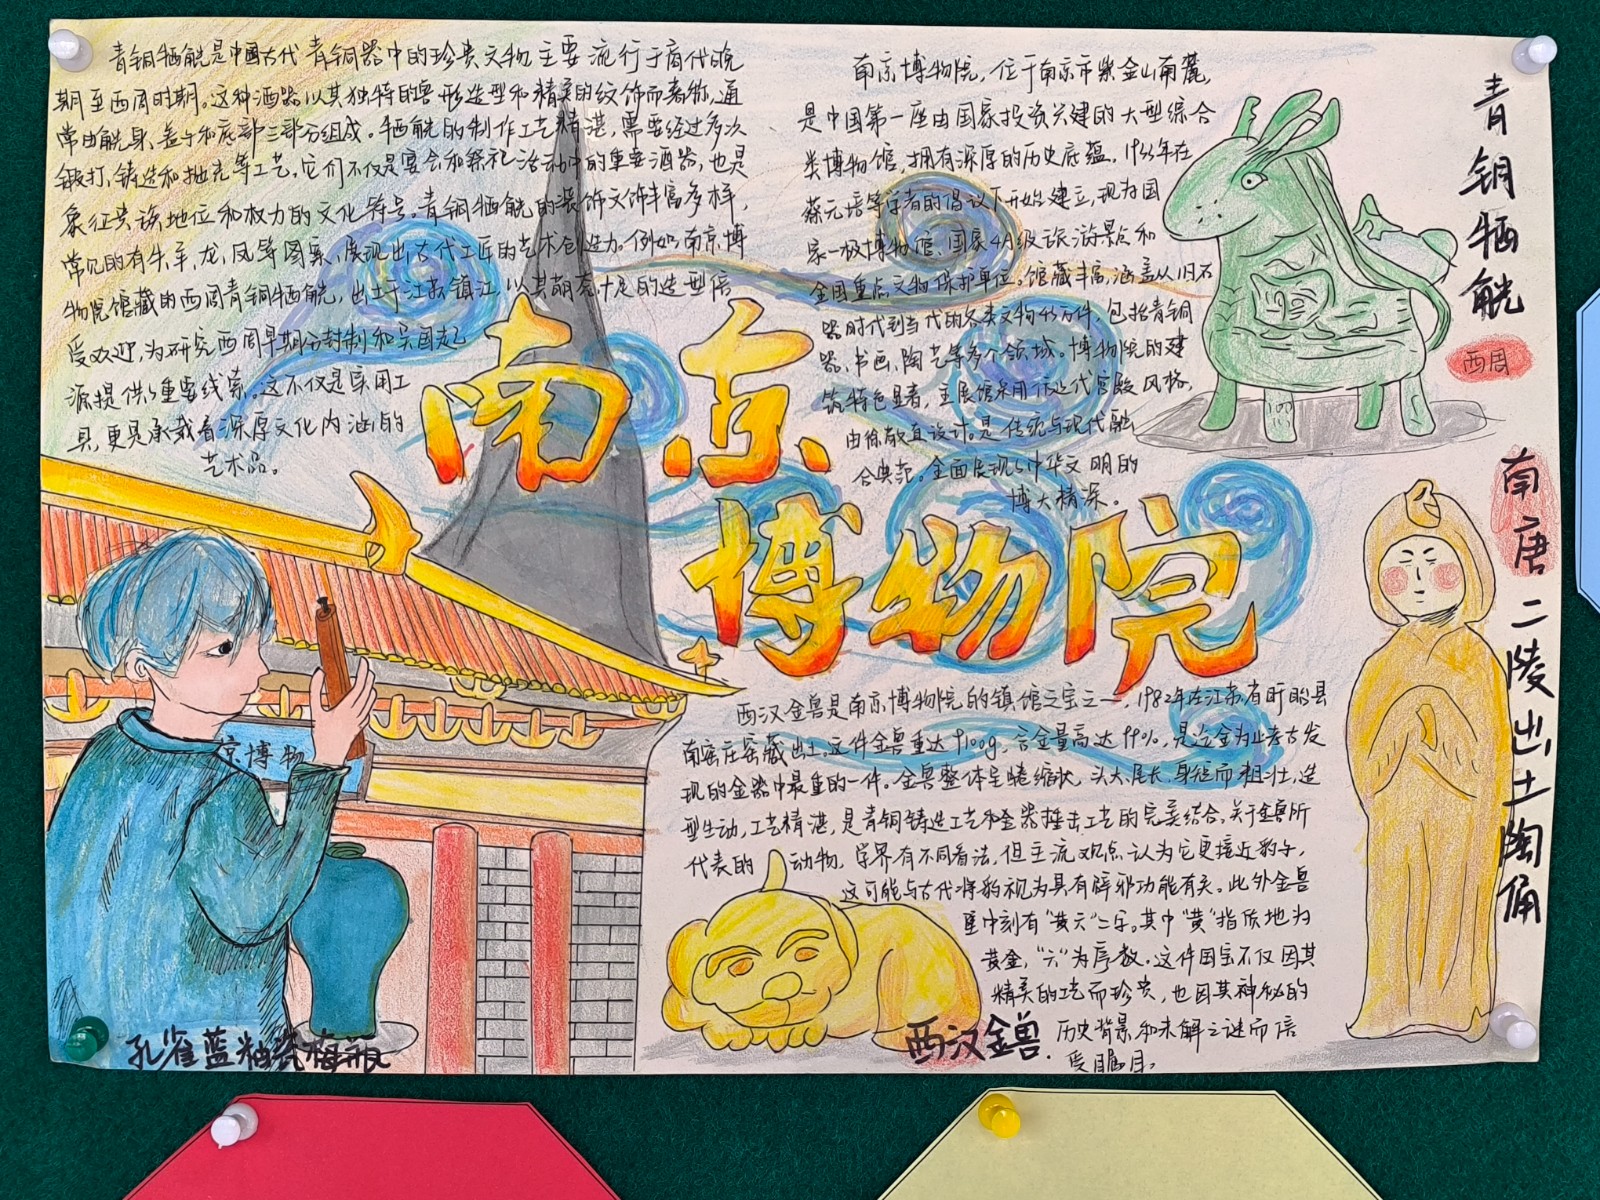 青铜牺觥是中国古代青铜器中的珍贵文物主要流行于商代晚
期至西周时期。这种酒器以其独特的兽形造型和精美的纹饰而著称，通
常由觥身、盖子和底部三部分组成。牺觥的制作工艺精湛，需要经过多次
锻打、铸造和抛光等工艺。它们不仅是宴会和祭礼活动中的重要酒器，也是
象征贵族地位和权力的文化符号。青铜牺觥的装饰文饰丰富多样，
常见的有牛、羊、龙、凤等图案，展现出古代工匠的艺术创造力。例如南京博
物院馆藏的西周青铜牺觥，出土于江苏镇江，以其萌态十足的造型倍
受欢迎，为研究西周早期分封制和吴国起
源提供了重要线索。这不仅是实用工
具，更是承载着深厚文化内涵的
艺术品。
南京博物院，位于南京市紫金山南麓，
是中国第一座由国家投资兴建的大型综合
类博物馆，拥有深厚的历史底蕴。1933年在
蔡元培等学者的倡议下开始建立，现为国
家一级博物馆、国家4A级旅游景点和
全国重点文物保护单位。馆藏丰富，涵盖从旧石
器时代到当代的各类文物43万件，包括青铜
器、书画、陶艺等多个领域。博物院的建
筑特色显著，主展馆采用仿辽代宫殿风格，
由徐敬直设计。是传统与现代融
合典范。全面展现了中华文明的
博大精深。
青铜牺觥
西周
南京
博物院
南唐二陵出土陶俑
京博物
西汉金兽是南京博物院的镇馆之宝之一，1982年在江苏省盱眙县
南窑庄窖藏出土。这件金兽重达9100g，含金量高达99%，是迄今为止考古发
现的金器中最重的一件。金兽整体呈蜷缩状，头大、尾长、身短而粗壮，造
型生动，工艺精湛，是青铜铸造工艺和金器捶击工艺的完美结合。关于金兽所
代表的动物，学界有不同看法，但主流观点认为它更接近豹子，
这可能与古代将豹视为具有辟邪功能有关。此外金兽
里中刻有“黄六”二字。其中“黄”指质地为
黄金，“六”为序数。这件国宝不仅因其
精美的工艺而珍贵，也因其神秘的
历史背景和未解之谜而倍
受瞩目。
西汉金兽
孔雀蓝釉瓷梅瓶